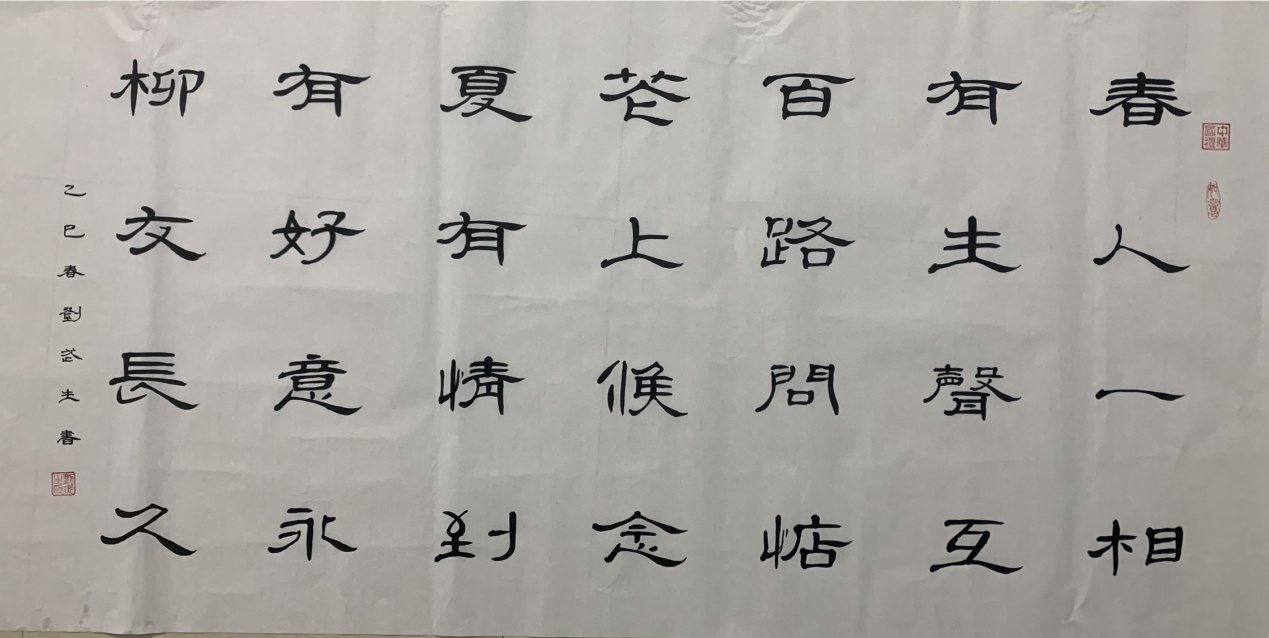 春有百花夏有柳
人生路上有好友
一聲問候情意長
相互惦念到永久
乙巳春劉武生書